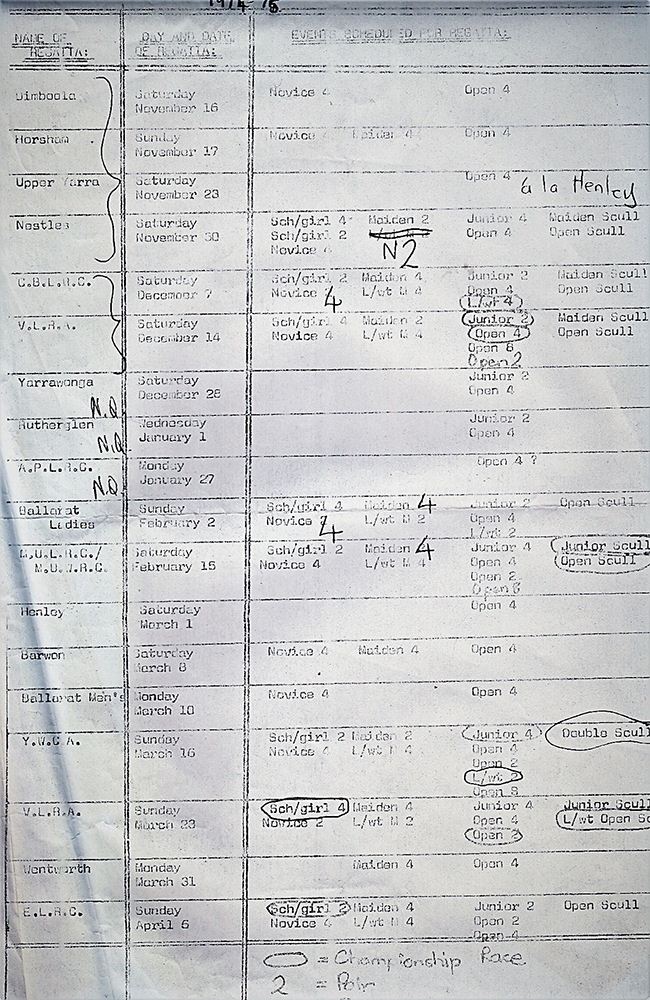 1974/5
NAME OF REGATTA: DAY AND DATE OF REGATTA: EVENTS SCHEDULED FOR REGATTA:
Dimboola Saturday Novice 4 Open 4
November 16
Horsham Sunday Novice 4 Maiden 4 Open 4
November 17
Upper Yarra Saturday Open 4 à la Henley
November 23
Nestles Saturday Sch/girl 4 Maiden 2 Junior 4 Maiden Scull
November 30 Sch/girl 2 N2 Open 4 Open Scull
Novice 4
C.B.L.R.C. Saturday Sch/girl 2 Maiden 4 Junior 2 Maiden Scull
December 7 Novice 4 L/wt M 4 Open 4 Open Scull
L/wt 4
V.L.R.A. Saturday Sch/girl 4 Maiden 2 Junior 2 Maiden Scull
December 14 Novice 4 L/wt M 4 Open 4 Open Scull
Open 8
Open 2
Yarrawonga Saturday Junior 2
N.Q. December 28 Open 4
Rutherglen Wednesday Junior 2
N.Q. January 1 Open 4
A.P.L.R.C. Monday Open 4 ?
N.Q. January 27
Ballarat Sunday Sch/girl 4 Maiden 4 Junior 2 Open Scull
Ladies February 2 Novice 4 L/wt M 2 Open 4
L/wt 2
M.U.L.R.C./ Saturday Sch/girl 2 Maiden 4 Junior 4 Junior Scull
M.U.W.R.C. February 15 Novice 4 L/wt M 4 Open 4 Open Scull
Open 2
Open 8
Henley Saturday Open 4
March 1
Barwon Saturday Novice 4 Maiden 4 Open 4
March 8
Ballarat Men's Monday Novice 4 Open 4
March 10
Y.W.C.A. Sunday Sch/girl 2 Maiden 2 Junior 4 Double Scull
March 16 Novice 4 L/wt M 4 Open 4
Open 2
L/wt 2
Open 8
V.L.R.A. Sunday Sch/girl 4 Maiden 4 Junior 4 Junior Scull
March 23 Novice 2 L/wt M 2 Open 4 L/wt Open Sc
Open 2
Wentworth Monday Maiden 4 Open 4
March 31
E.L.R.C. Sunday Sch/girl 2 Maiden 4 Junior 2 Open Scull
April 6 Novice 4 L/wt M 4 Open 2
Open 4
= Championship Race
2 = Pair